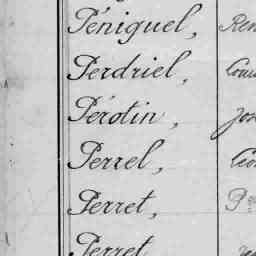 Péniguel, Ren
Perdriel,
Pérotin, Jos
Perrel, Léo
Perret,
Perret